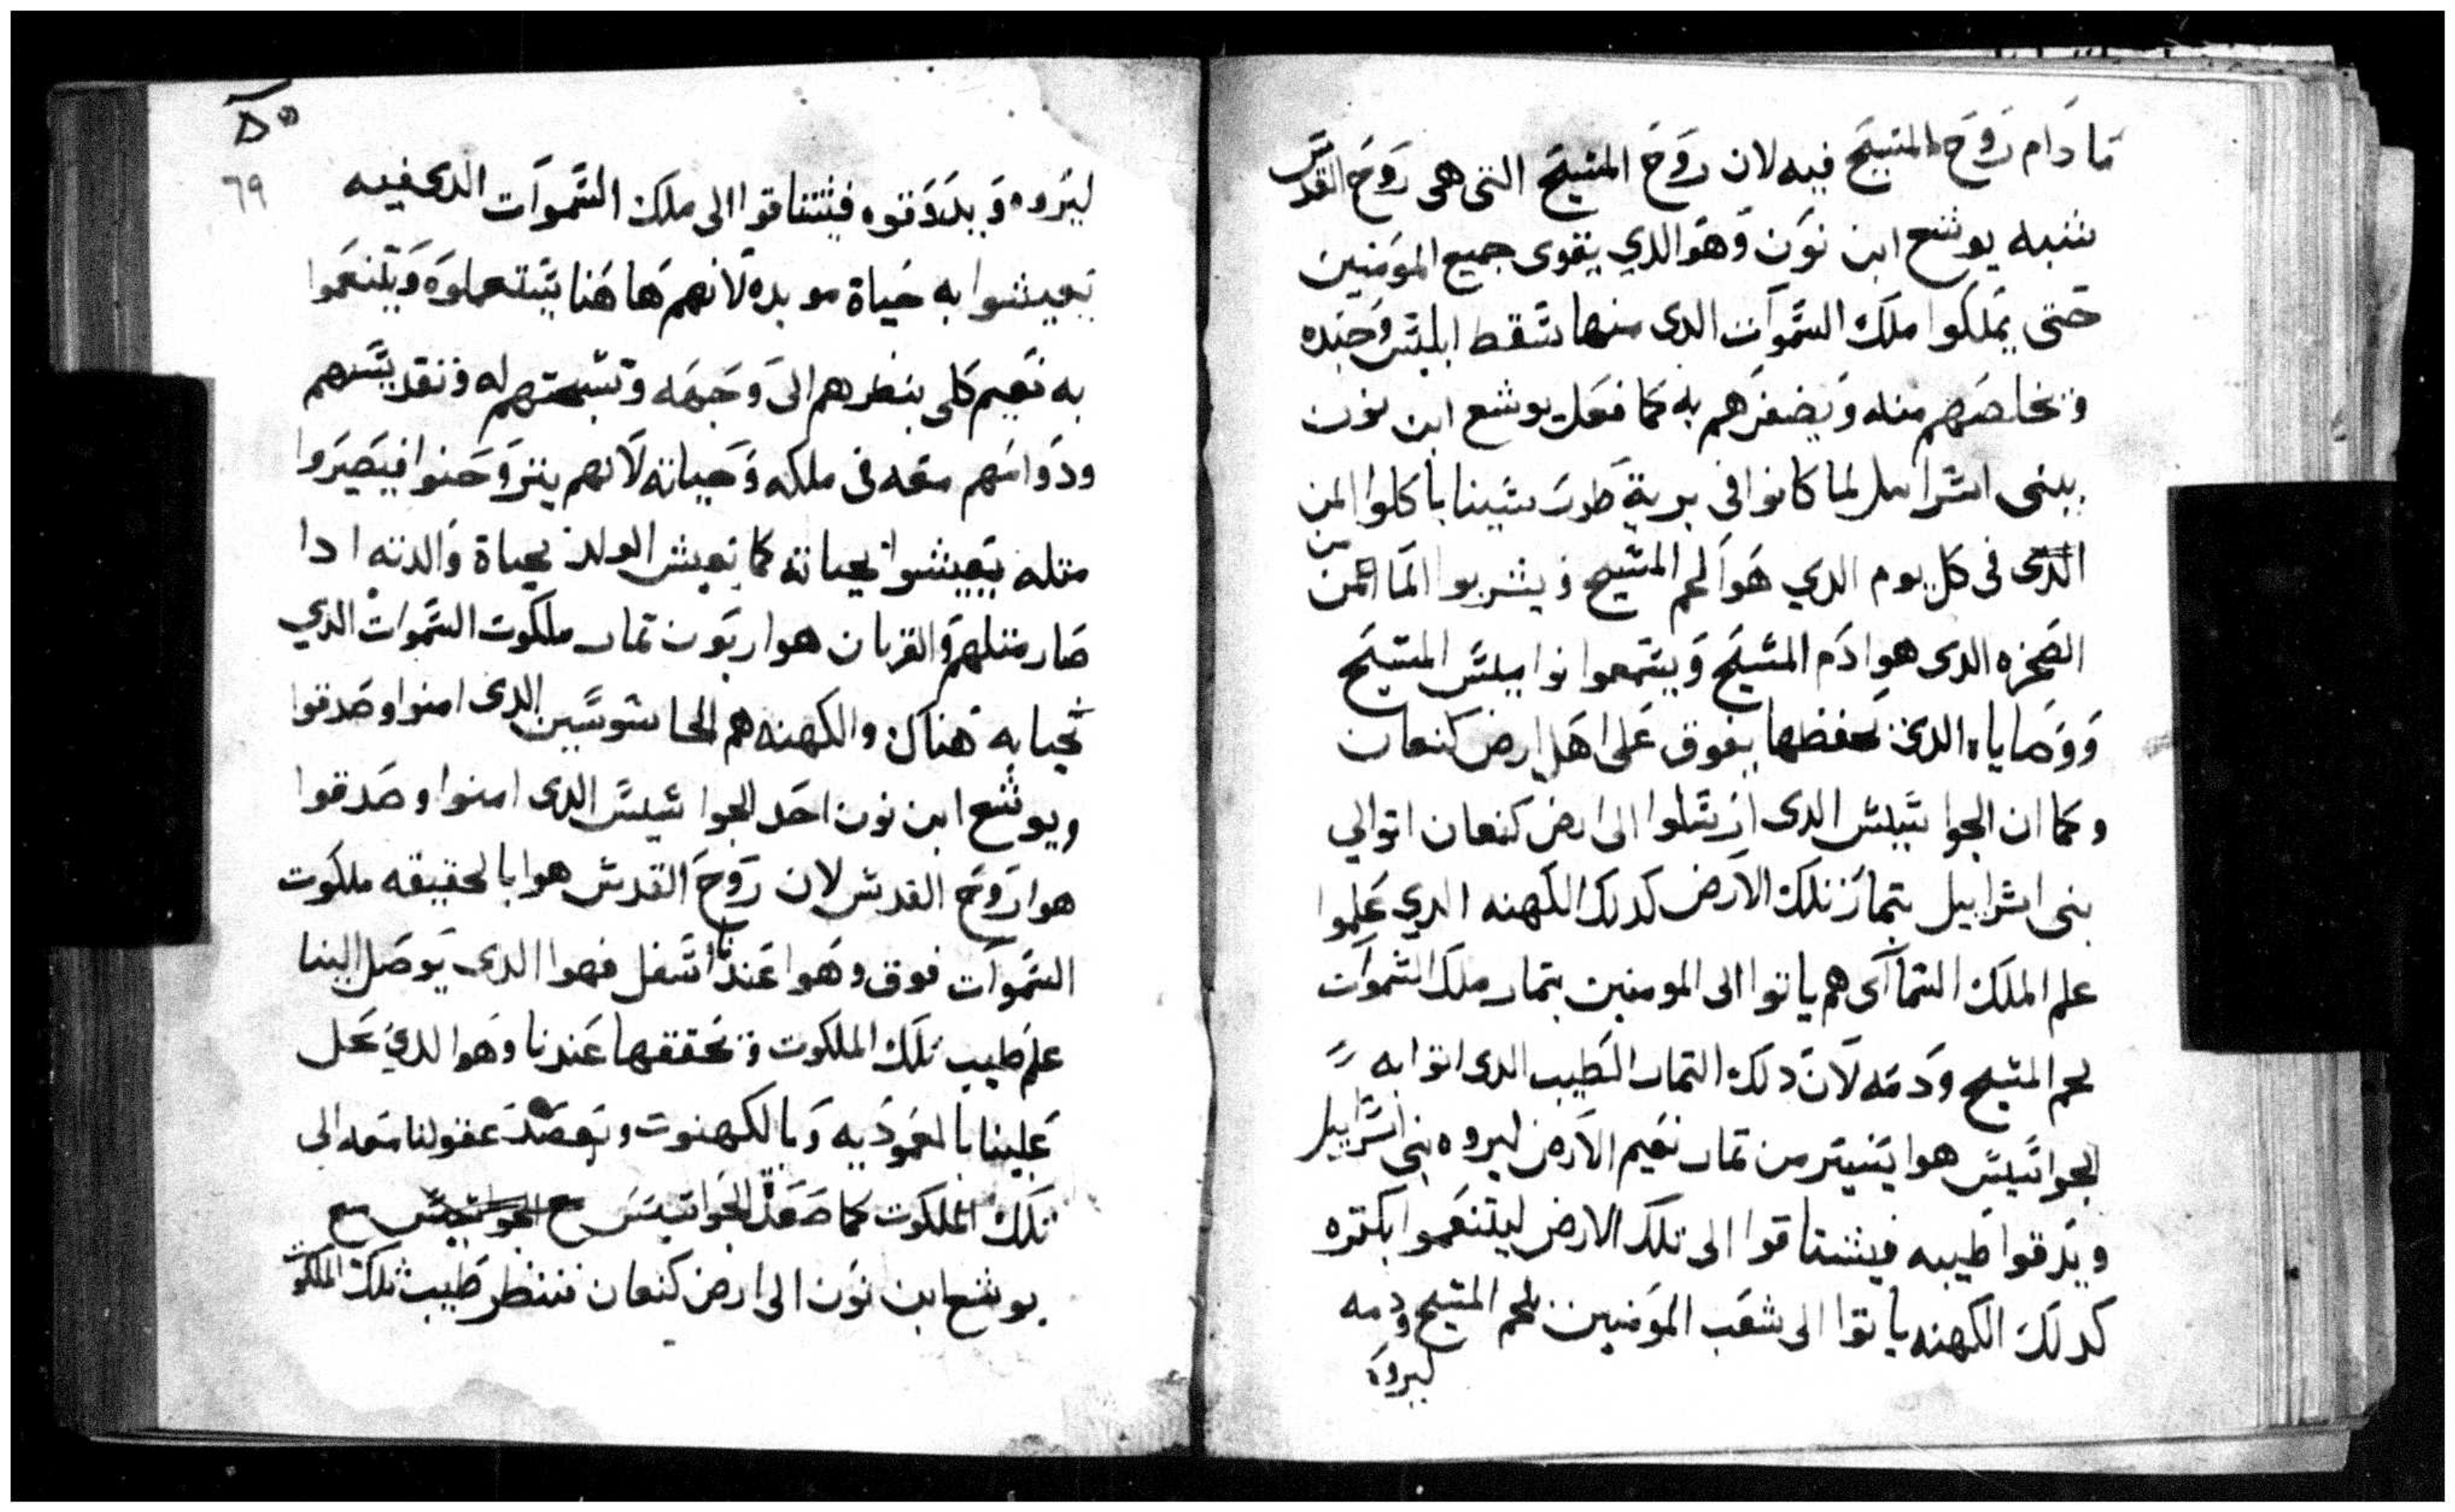 ما دام روح المسيح فيه لان روح المسيح التى هى روح القدس
شبه يوشع ابن نون وهو الدي يقوى جميع المومنين
حتى يملكوا ملك السموات الدى منها سقط ابليس وجنده
وتخلصهم منه ويضفرهم به كما فعل يوشع ابن نون
ببنى اسراييل لما كانوا فى برية طور سينا ياكلوا المن
الدى فى كل يوم الدي هوا لحم المسيح ويشربوا الما من
الصخره الدى هوا دم المسيح ويستمعوا نواميس المسيح
ووصاياه الدي تحفظها يفوق على اهل ارض كنعان
وكما ان الجواسيس الدى ارسلوا الى ارض كنعان اتوا الي
بنى اسراييل بتمار تلك الارض كدلك الكهنه الدي علموا
علم الملك السماآى هم ياتوا الى المومنين بتمار ملك السموات
لحم المسيح ودمه لان دلك التمار الطيب الدى اتوا به
الجواسيس هوا يسير من تمار نعيم الارض ليروه بنى اسراييل
ويدقوا طيبه فيشتاقوا الى تلك الارض ليتنعموا بكتره
كدلك الكهنه ياتوا الى شعب المومنين بلحم المسيح ودمه
ليروه
٦٩
ليروه ويدوقوه فيشتاقوا الى ملك السموات الدى فيه
يعيشوا به حياة موبده لانهم هاهنا يستعملوه ويتنعموا
به نعيم كلى بنظرهم الى وجهه وتسبحتهم له وتقديسهم
ودوامهم معه فى ملكه وحياته لانهم يتروحنوا فيصيروا
متله يعيشوا بحياته كما يعيش الولد بحياة والدته ادا
صار متلهم والقربان هوا ربون تمار ملكوت السموات الدي
نحيا به هناك والكهنه هم الجاسوسين الدى امنوا وصدقوا
ويوشع ابن نون احد الجواسيس الدى امنوا وصدقوا
هوا روح القدس لان روح القدس هوا بالحقيقه ملكوت
السموات فوق وهوا عندنا اسفل فهوا الدى يوصل الينا
علم طيب تلك الملكوت وتحققها عندنا وهوا الدي يحل
علينا بالمعموديه وبالكهنوت ويصعد عقولنا معه الى
تلك الملكوت كما صعد الجواسيس مع الجواسيس مع
يوشع ابن نون الى ارض كنعان فننظر طيب تلك الملكوت